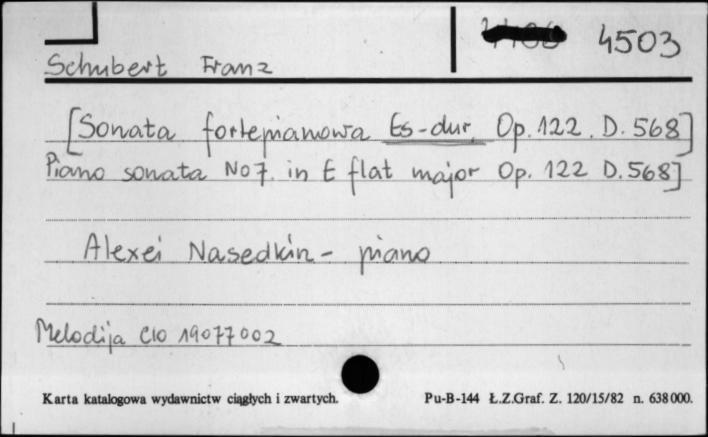 4503
Schubert Franz
[Sonata fortepianowa Es-dur, Op. 122. D. 568]
Piano sonata No 7. in E flat major Op. 122 D. 568]
Alexei Nasedkin - piano
Melodija C10 19077002
Karta katalogowa wydawnictw ciągłych i zwartych. Pu-B-144 Ł.Z.Graf. Z. 120/15/82 n. 638000.